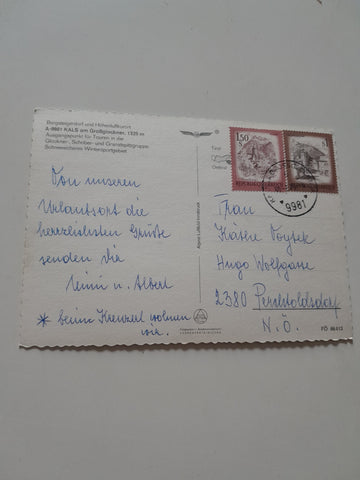 Bergsteigerdorf und Höhenluftkurort
A-9981 KALS am Großglockner, 1325 m
Ausgangspunkt für Touren in die
Glockner-, Schober- und Granatspitzgruppe
Schneesicheres Wintersportgebiet
Von unseren
Urlaubsort die
herzlichsten Grüße
senden Dir
u. Albert
* beim Krenzel wohnen
wir.
Tirol
Osttirol
1.50
S
REPUBLIK
S
9981
Frau
Käthe Voytek
Hugo Wolfgasse
2380 Perchtoldsdorf
N.Ö.